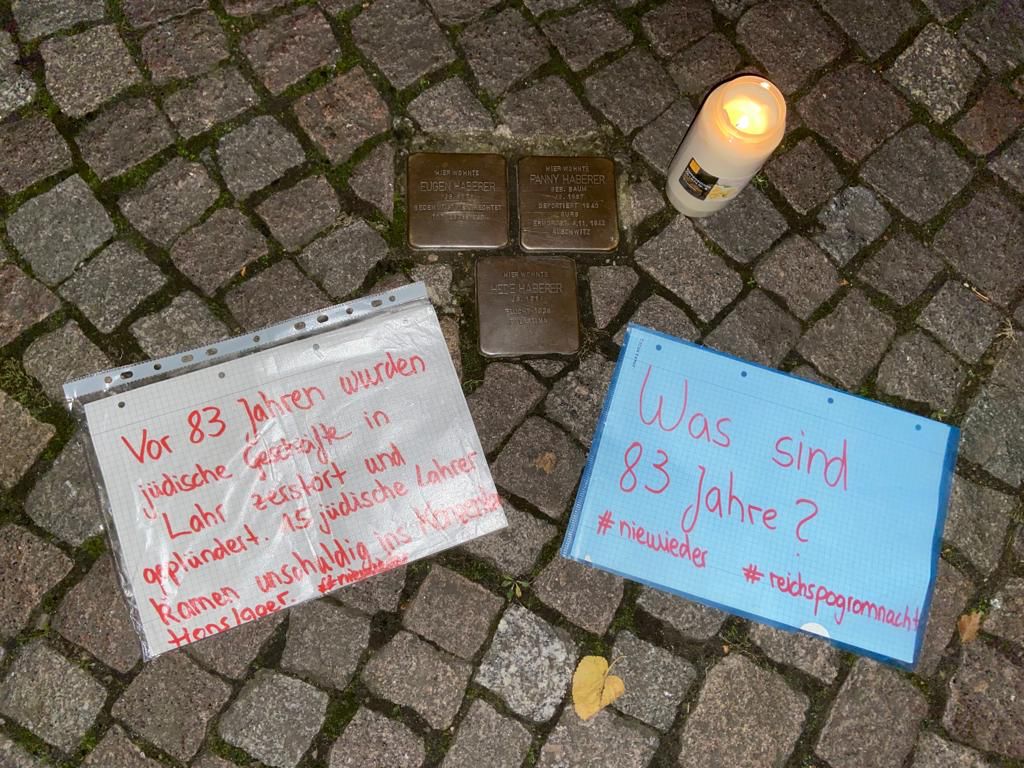 HIER WOHNTE
EUGEN HABERER
HIER WOHNTE
FANNY HABERER
GEB. BAUM
JG. 1887
DEPORTIERT 1940
GURS
ERMORDET 4.11.1942
AUSCHWITZ
HIER WOHNTE
HEDE HABERER
FLUCHT 1938
Vor 83 Jahren wurden
jüdische Geschäfte in
Lahr zerstört und
geplündert. 15 jüdische Lahrer
kamen unschuldig ins
#niewieder
Was sind
83 Jahre?
#niewieder
#reichspogromnacht